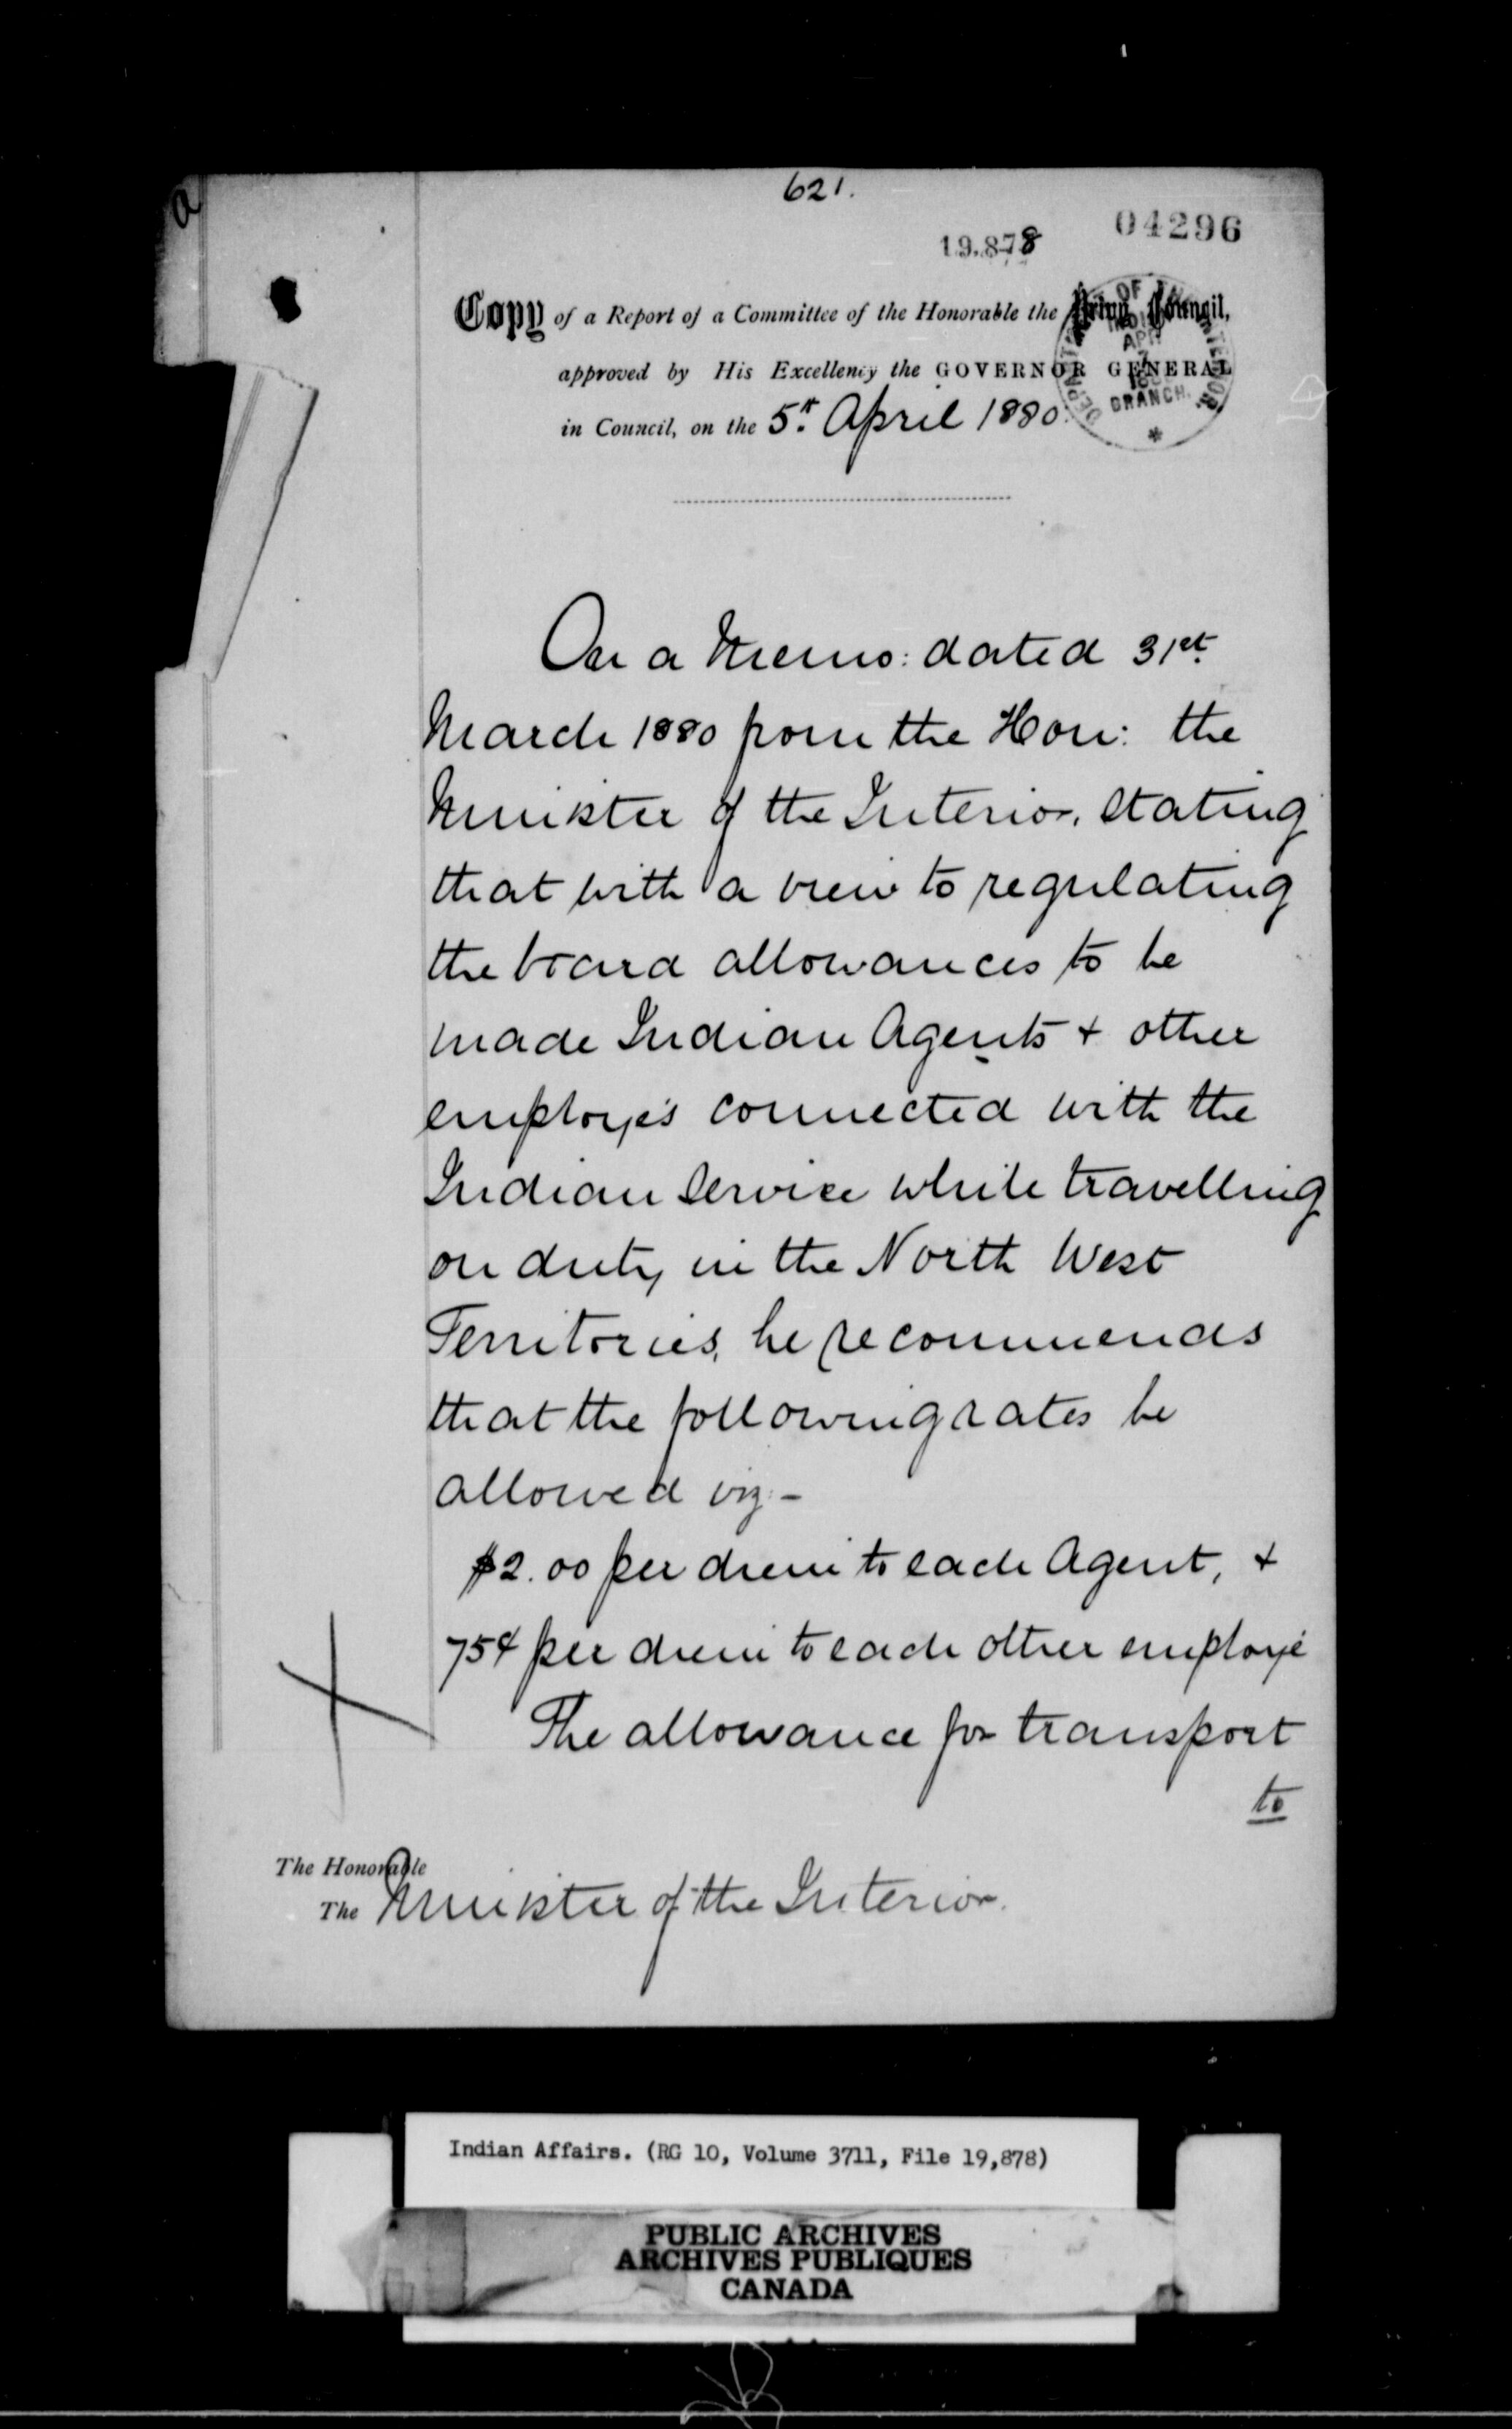 621.
04296
19.878
Copy of a Report of a Committee of the Honorable the Privy Council,
approved by His Excellency the GOVERNOR GENERAL
in Council, on the 5th April 1880.
BRANCH.
On a Memo: dated 31st
March 1880 from the Hon: the
Minister of the Interior, stating
that with a view to regulating
the board allowances to be
made Indian Agents + other
employés connected with the
Indian Service while travelling
on duty in the North West
Territories, he recommends
that the following rates be
allowed viz:-
$2.00 per diem to each Agent, +
75¢ per diem to each other employé
The allowance for transport
to
The Honorable
The Minister of the Interior.
Indian Affairs. (RG 10, Volume 3711, File 19,878)
PUBLIC ARCHIVES
ARCHIVES PUBLIQUES
CANADA